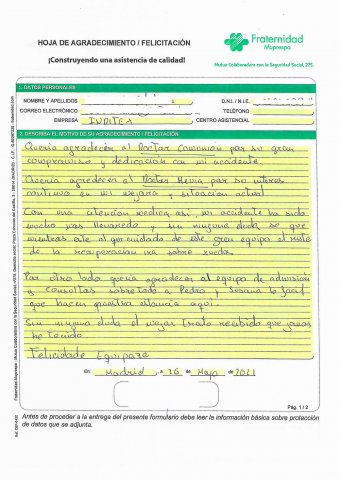 HOJA DE AGRADECIMIENTO / FELICITACIÓN
¡Construyendo una asistencia de calidad!
Fraternidad
Muprespa
Mutua Colaboradora con la Seguridad Social, 275.
1. DATOS PERSONALES
NOMBRE Y APELLIDOS
D.N.I. / N.I.E.
CORREO ELECTRÓNICO
TELÉFONO
EMPRESA INDITEX
CENTRO ASISTENCIAL
2. DESCRIBA EL MOTIVO DE SU AGRADECIMIENTO / FELICITACIÓN
Queria agradecer al Doctor por su gran
compromiso y dedicacion con mi accidente.
Queria agredecer al Doctor Mevia por su interes
continuo en mi mejora y situacion actual
Con una atencion medica asi, mi accidente ha sido
mucho mas llevadero, y sin ninguna duda se que
mientras este al cuidado de este gran equipo el resto
de la recuperacion ira sobre ruedas.
Por otro lado queria agradecer al equipo de admision
y consultas sobretodo a Pedro y Susana lo facil
que hacen nuestra estancia aqui.
Sin ninguna duda el mejor trato recibido que jamas
he tenido.
Felicidades Equipazo
En Madrid, a 26 de Mayo de 2021
Pág. 1 / 2
Antes de proceder a la entrega del presente formulario debe leer la información básica sobre protección
de datos que se adjunta.